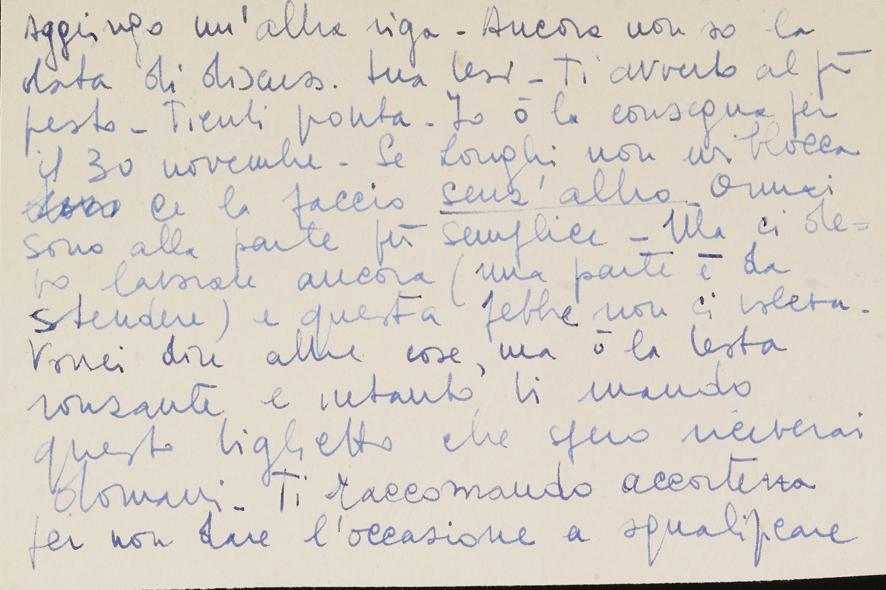 Aggiungo un'altra riga - Ancora non so la
data di discuss. tua tesi - Ti avverto al più
presto - Tienti pronta - Io ò la consegna per
il 30 novembre - Se Longhi non mi blocca
ce la faccio senz'altro. Ormai
sono alla parte più semplice - Ma ci de=
vo lavorare ancora (una parte è da
stendere) e questa febbre non ci voleva -
Vorrei dire altre cose, ma ò la testa
ronzante e intanto ti mando
questo biglietto che spero riceverai
domani - Ti raccomando accortezza
per non dare l'occasione a squalificare